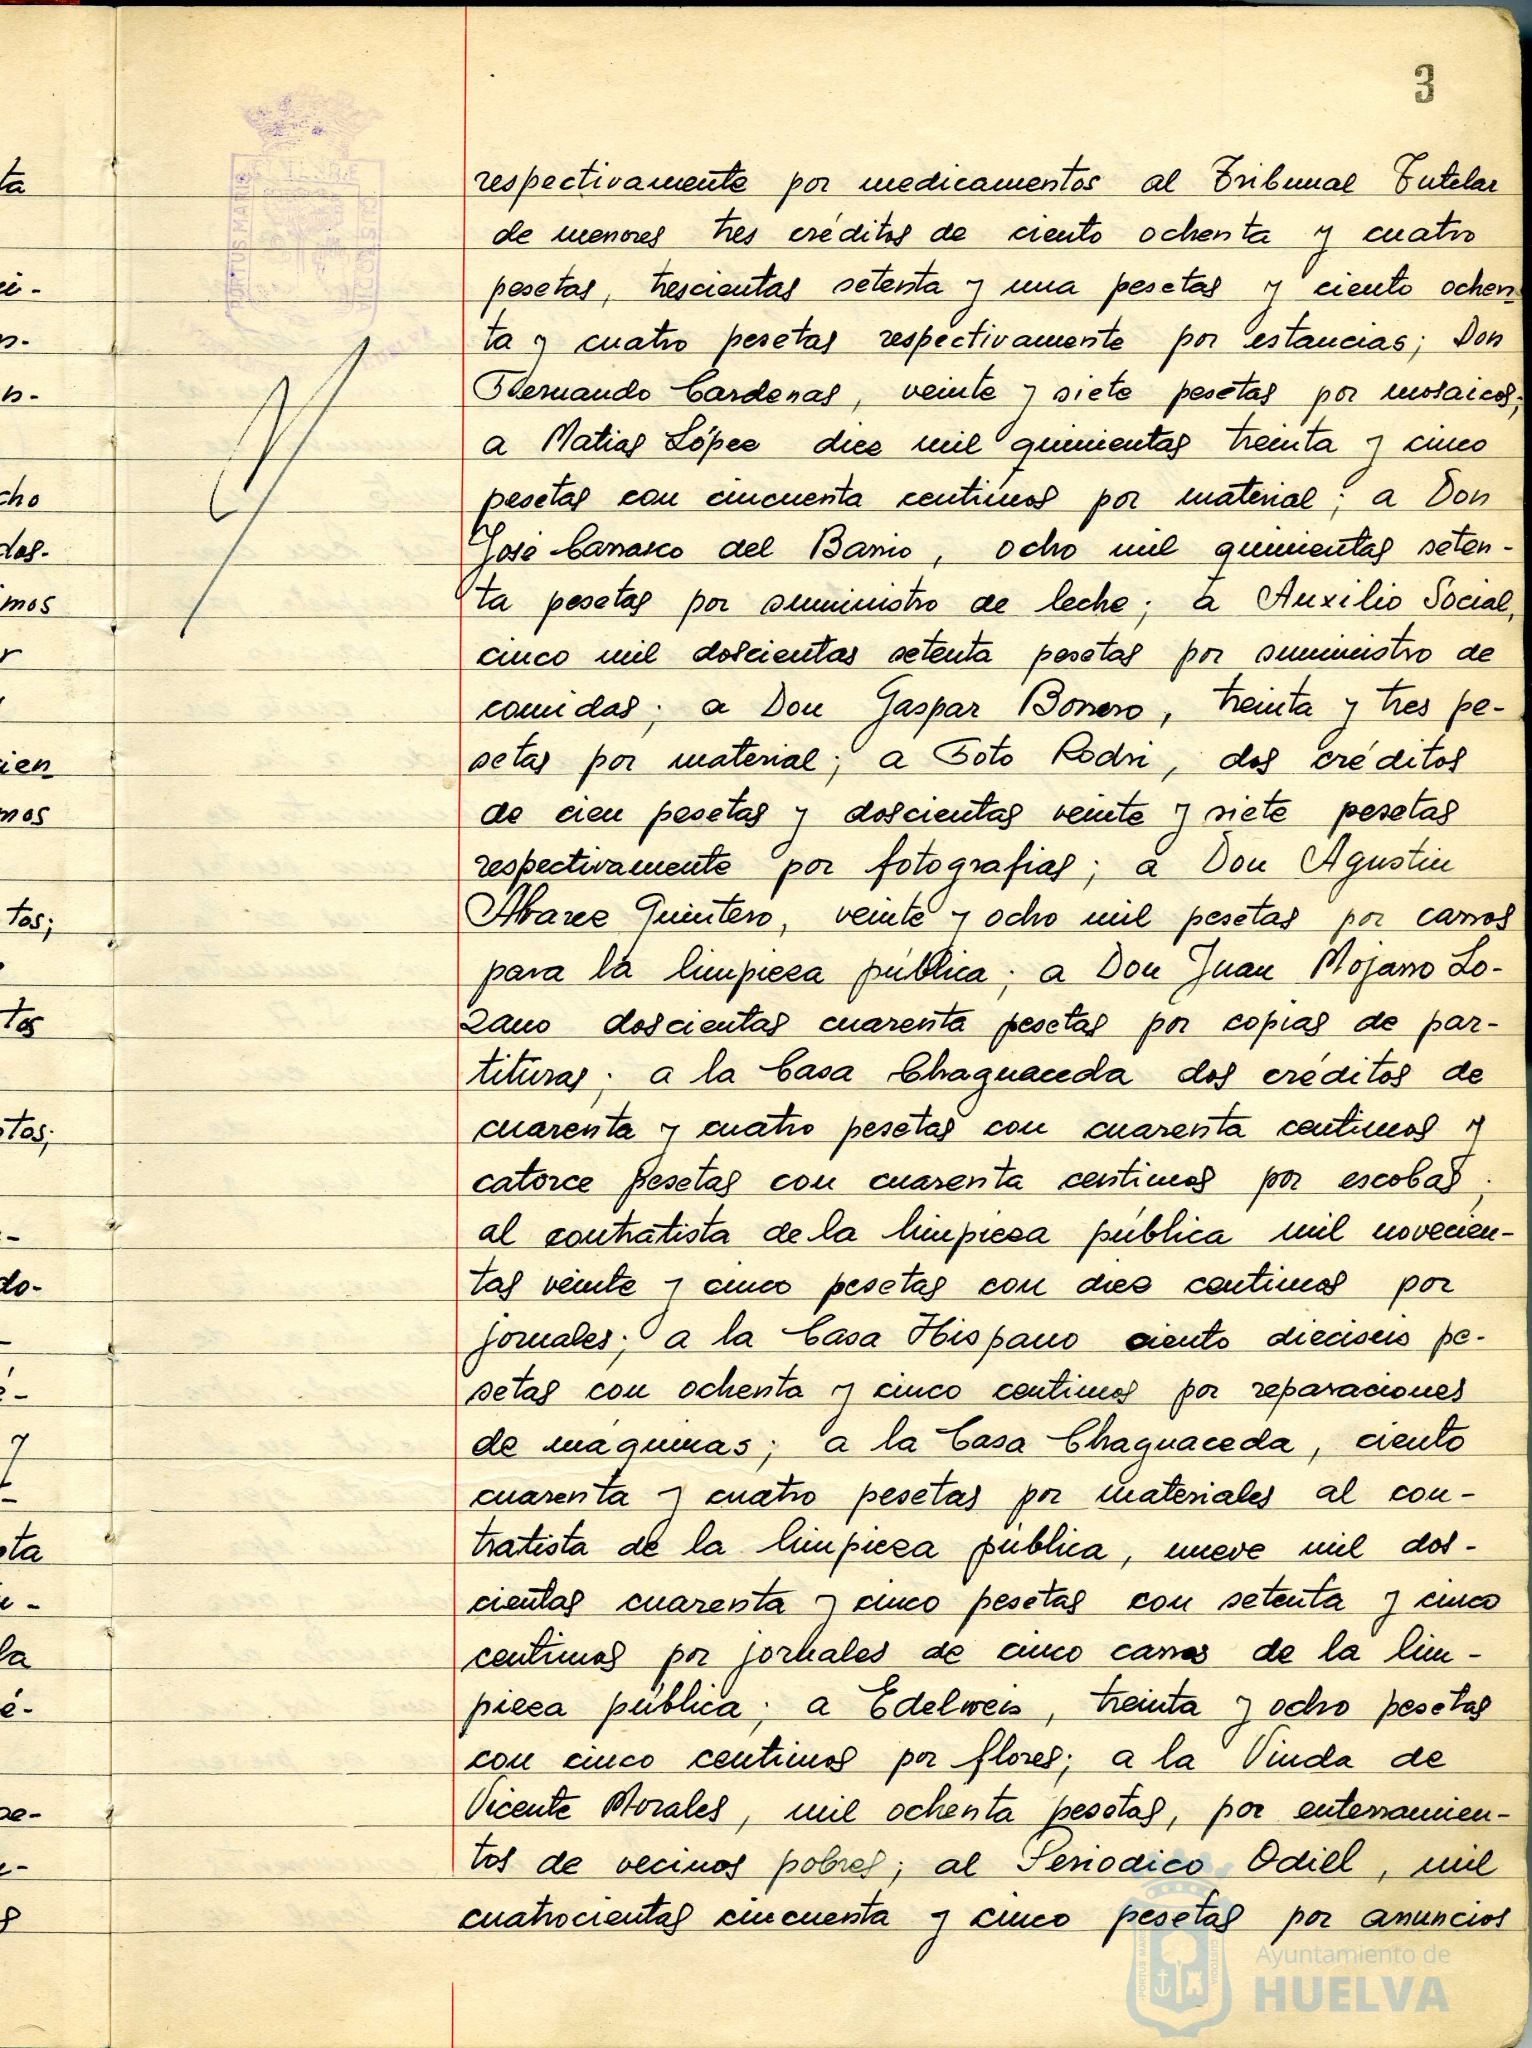 3
respectivamente por medicamentos al Tribunal Tutelar
de menores tres créditos de ciento ochenta y cuatro
pesetas, trescientas setenta y una pesetas y ciento ochen
ta y cuatro pesetas respectivamente por estancias; Don
Fernando Cardenas, veinte y siete pesetas por mosaicos;
a Matias López diez mil quinientas treinta y cinco
pesetas con cincuenta centimos por material; a Don
José Carrasco del Barrio, ocho mil quinientas seten-
ta pesetas por suministro de leche; a Auxilio Social,
cinco mil doscientas setenta pesetas por suministro de
comidas; a Don Gaspar Borrero, treinta y tres pe-
setas por material; a Foto Rodri, dos créditos
de cien pesetas y doscientas veinte y siete pesetas
respectivamente por fotografias; a Don Agustin
Alvarez Quintero, veinte y ocho mil pesetas por carros
para la limpieza pública; a Don Juan Mojarro Lo-
zano doscientas cuarenta pesetas por copias de par-
tituras; a la Casa Chaguaceda dos créditos de
cuarenta y cuatro pesetas con cuarenta centimos y
catorce pesetas con cuarenta centimos por escobas;
al contratista de la limpieza pública mil novecien-
tas veinte y cinco pesetas con diez centimos por
jornales; a la Casa Hispano ciento dieciseis pe-
setas con ochenta y cinco centimos por reparaciones
de maquinas; a la Casa Chaguaceda, ciento
cuarenta y cuatro pesetas por materiales al con-
tratista de la limpieza pública, nueve mil dos-
cientas cuarenta y cinco pesetas con setenta y cinco
centimos por jornales de cinco carros de la lim-
pieza pública; a Edelweis, treinta y ocho pesetas
con cinco centimos por flores; a la Viuda de
Vicente Morales, mil ochenta pesetas, por enterramien-
tos de vecinos pobres; al Periodico Odiel, mil
cuatrocientas cincuenta y cinco pesetas por anuncios
Ayuntamiento de
HUELVA